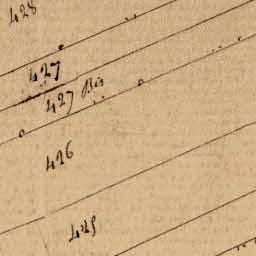 428
427
427 Bis
426
425